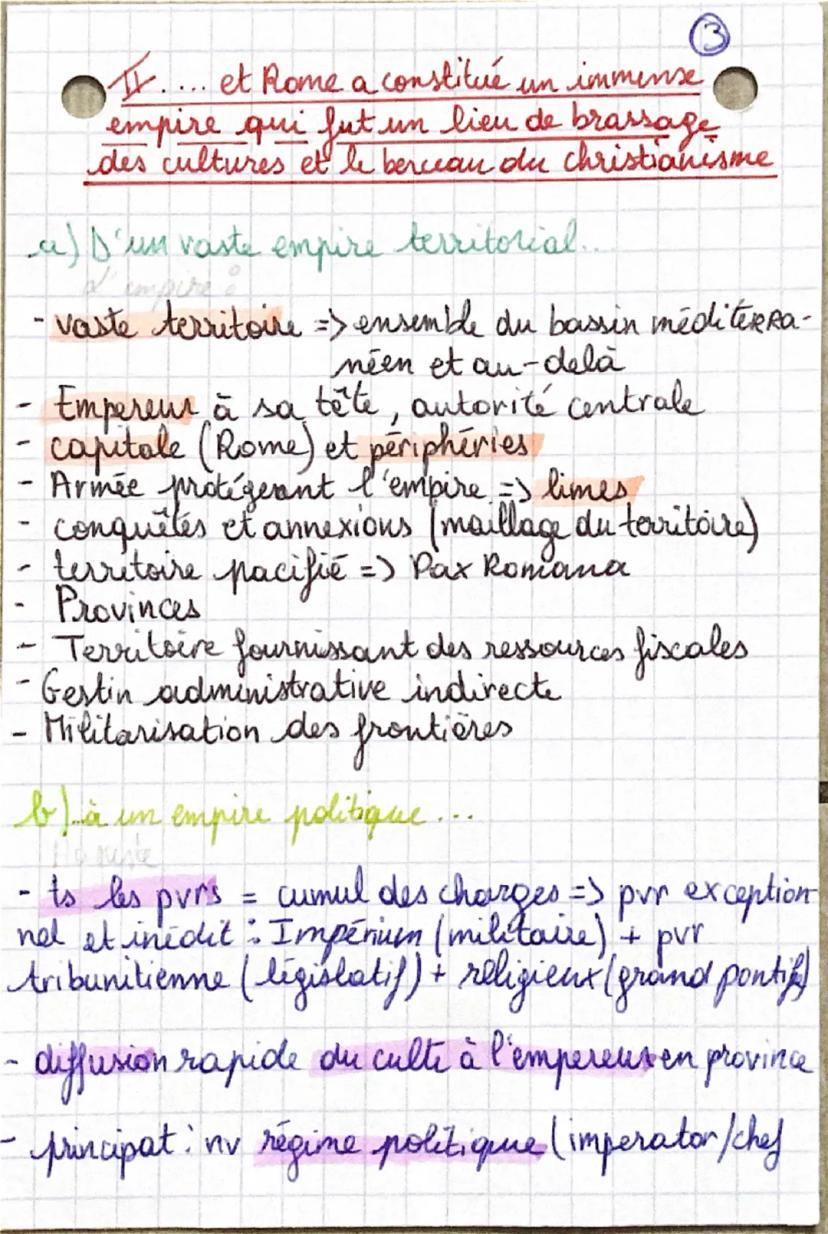 3
II.... et Rome a constitué un immense
empire qui fut un lieu de brassage
des cultures et le berceau du christianisme
a) D'un vaste empire territorial...
L'empire :
- vaste territoire => ensemble du bassin méditerra-
néen et au-delà
- Empereur à sa tête, autorité centrale
- capitale (Rome) et périphéries
- Armée protégeant l'empire => limes
- conquêtes et annexions (maillage du territoire)
- territoire pacifié => Pax Romana
- Provinces
- Territoire fournissant des ressources fiscales
- Gestin administrative indirecte
- Militarisation des frontières
b)..à un empire politique...
- ts les pvrs = cumul des charges => pvr exception
nel et inédit : Impérium (militaire) + pvr
tribunitienne (législatif) + religieux (grand pontife)
- diffusion rapide du culte à l'empereur en province
- principat : nv régime politique (imperator/chef